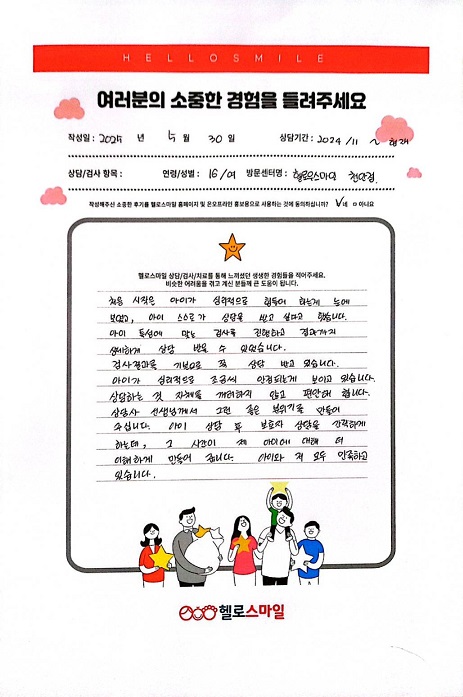 HELLOSMILE
여러분의 소중한 경험을 들려주세요
작성일 : 2025 년 5 월 30 일 상담기간 : 2024 / 11 ~ 현재
상담/검사 항목 : 연령/성별 : 16 / 여 방문센터명 : 헬로스마일 천안점
작성해주신 소중한 후기를 헬로스마일 홈페이지 및 온오프라인 홍보용으로 사용하는 것에 동의하십니까? V네 ㅁ아니요
헬로스마일 상담/검사/치료를 통해 느끼셨던 생생한 경험들을 적어주세요.
비슷한 어려움을 겪고 계신 분들께 큰 도움이 됩니다.
처음 시작은 아이가 심리적으로 힘들어 하는게 눈에
보였고, 아이 스스로가 상담을 받고 싶다고 했습니다.
아이 특성에 맞는 검사를 진행하고 결과까지
상세하게 상담 받을 수 있었습니다.
검사결과를 기본으로 쭉 상담 받고 있습니다.
아이가 심리적으로 조금씩 안정되는게 보이고 있습니다.
상담하는 것 자체를 꺼려하지 않고 편안해 합니다.
상담사 선생님께서 그런 좋은 분위기를 만들어
주십니다. 아이 상담 후 보호자 상담을 간략하게
하는데, 그 시간이 제 아이에 대해 더
이해하게 만들어 줍니다. 아이와 저 모두 만족하고
있습니다.
헬로스마일